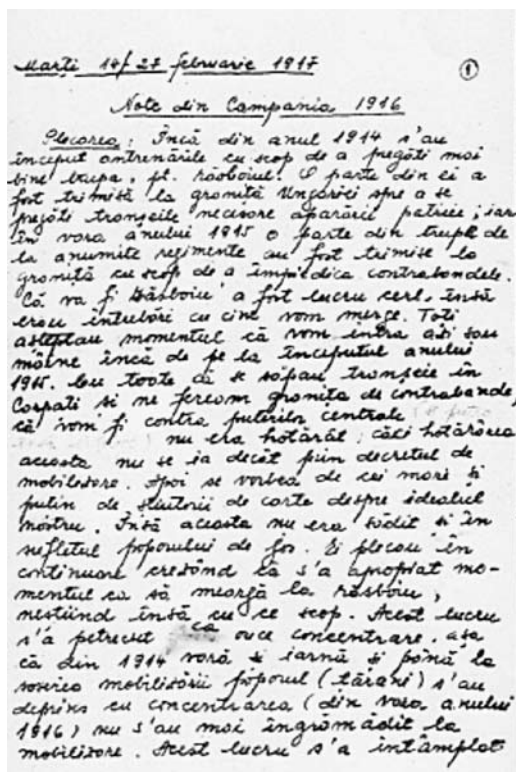 Marți 14/27 februarie 1917
1
Note din Campania 1916
Plecarea: Încă din anul 1914 s'au
început antrenările cu scop de a pregăti mai
bine trupa, pt. răsboiul. O parte din ei a
fost trimisă la graniță Ungariei spre a se
pregăti tranșeile necesare apărării patriei; iar
în vara anului 1915 o parte din trupele de
la anumite regimente au fost trimise la
graniță cu scop de a împiedica contrabandele.
Că va fi Răsboiu a fost lucru cert, însă
erau întrebări cu cine vom merge. Toți
așteptau momentul că vom intra azi sau
mâine încă de pe la începutul anului
1915. Cu toate că se săpau tranșeie în
Carpați si ne feream granița de contrabande,
că vom fi contra puterilor centrale
nu era hotărât; căci hotărârea
aceasta nu se ia decât prin decretul de
mobilizare. Apoi se vorbea de cei mari și
puțin de știutorii de carte despre idealul
nostru. Însă aceasta nu era sădit si în
sufletul poporului de jos. Ei plecau în
continuare crezând că s'a apropiat mo-
mentul ca să meargă la răsboiu,
neștiind însă cu ce scop. Acest lucru
s'a petrecut ca orice concentrare, așa
că din 1914 vară și iarnă și până la
sosirea mobilizării poporul (țărani) s'au
deprins cu concentrarea (din vara anului
1916) nu s'au mai îngrămădit la
mobilizare. Acest lucru s'a întâmplat